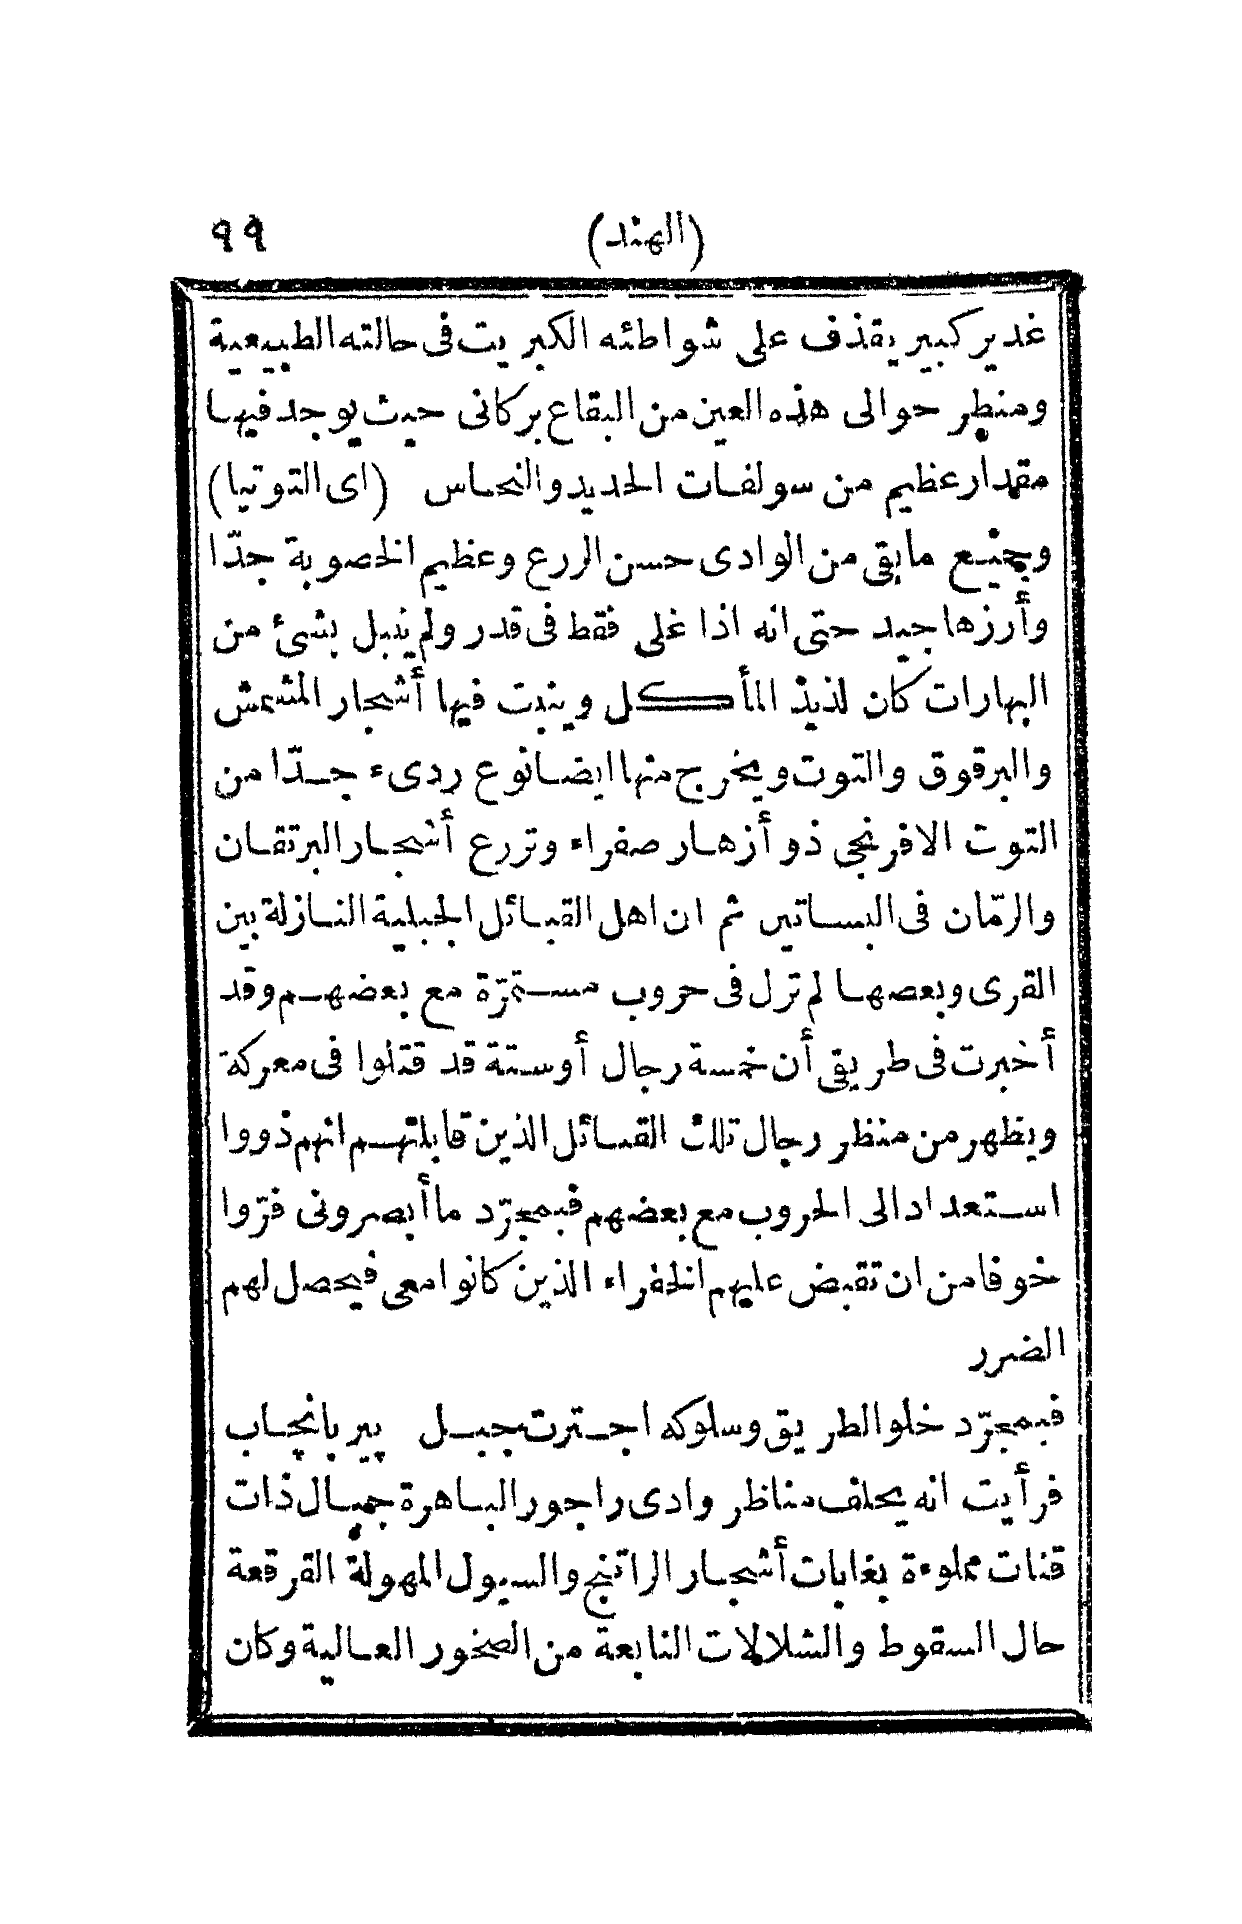 (الهند) ٩٩
غدير كبير يقذف على شواطئه الكبريت فى حالته الطبيعية
ومنظر حوالى هذه العين من البقاع بركانى حيث يوجد فيها
مقدار عظيم من سولفات الحديد والنحاس (اى التوتيا)
وجميع مابقى من الوادى حسن الزرع وعظيم الخصوبة جدّا
وأرزها جيد حتى انه اذا غلى فقط فى قدر ولم ينبل بشئ من
البهارات كان لذيذ المأكل وينبت فيها أشجار المشمش
والبرقوق والتوت ويخرج منها ايضا نوع ردىء جدّا من
التوت الافرنجى ذو أزهار صفراء وتزرع أشجار البرتقان
والرمّان فى البساتين ثم ان اهل القبائل الجبلية النازلة بين
القرى وبعضها لم تزل فى حروب مستمرّة مع بعضهم وقد
أخبرت فى طريقى أن خمسة رجال أوستة قد قتلوا فى معركة
ويظهر من منظر رجال تلك القبائل الذين قابلتهم انهم ذووا
استعداد الى الحروب مع بعضهم فبمجرّد ما أبصرونى فرّوا
خوفا من ان تقبض عليهم الخفراء الذين كانوا معى فيحصل لهم
الضرر
فبمجرّد خلو الطريق وسلوكه اجتزت جبل پير پانچاب
فرأيت انه يخلف مناظر وادى راجور الباهرة جبال ذات
قنات مملوءة بغابات أشجار الراتنج والسيول المهولة القرقعة
حال السقوط والشلالات النابعة من الصخور العالية وكان